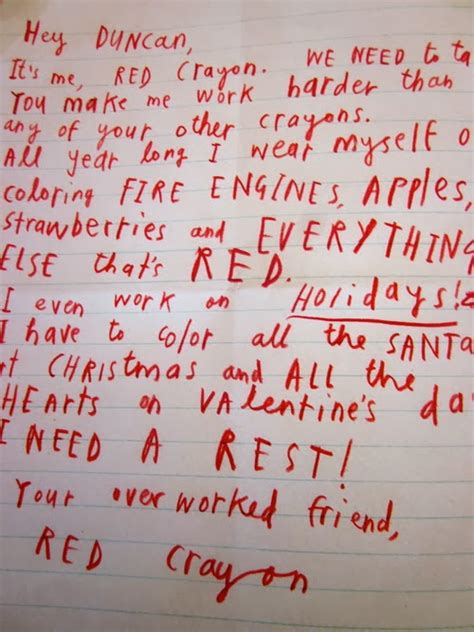 Hey DUNCAN,
It's me, RED Crayon. WE NEED to ta
You make me work harder than
any of your other crayons.
All year long I wear myself o
coloring FIRE ENGINES, Apples,
strawberries and EVERYTHING
ELSE that's RED.
I even work on Holidays!
I have to color all the SANTA
t CHRISTMAS and All the da
HEArts on VAlentine's da
I NEED A REST!
Your overworked friend,
RED Crayon